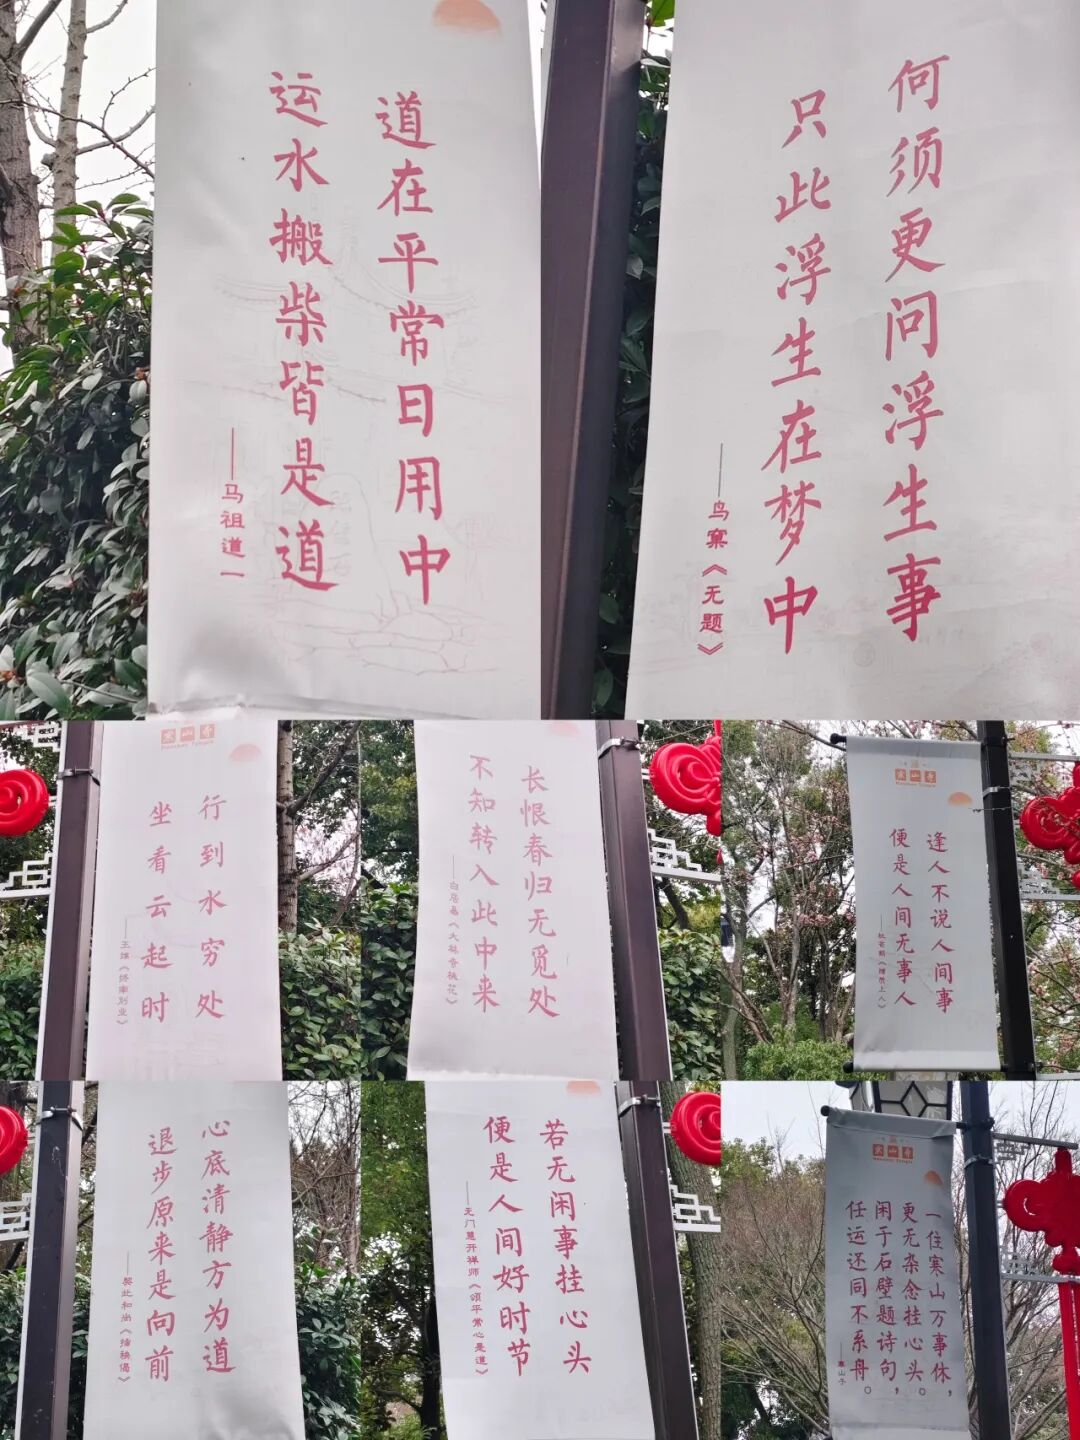 道在平常日用中
运水搬柴皆是道
——马祖道一
何须更问浮生事
只此浮生在梦中
——鸟窠《无题》
寒山寺
行到水穷处
坐看云起时
——王维《终南别业》
长恨春归无觅处
不知转入此中来
——白居易《大林寺桃花》
寒山寺
逢人不说人间事
便是人间无事人
——杜荀鹤《赠质上人》
心底清静方为道
退步原来是向前
——契此和尚《插秧偈》
若无闲事挂心头
便是人间好时节
——无门慧开禅师《颂平常心是道》
寒山寺
Hanshan Temple
一住寒山万事休，
更无杂念挂心头。
闲于石壁题诗句，
任运还同不系舟。
——寒山子